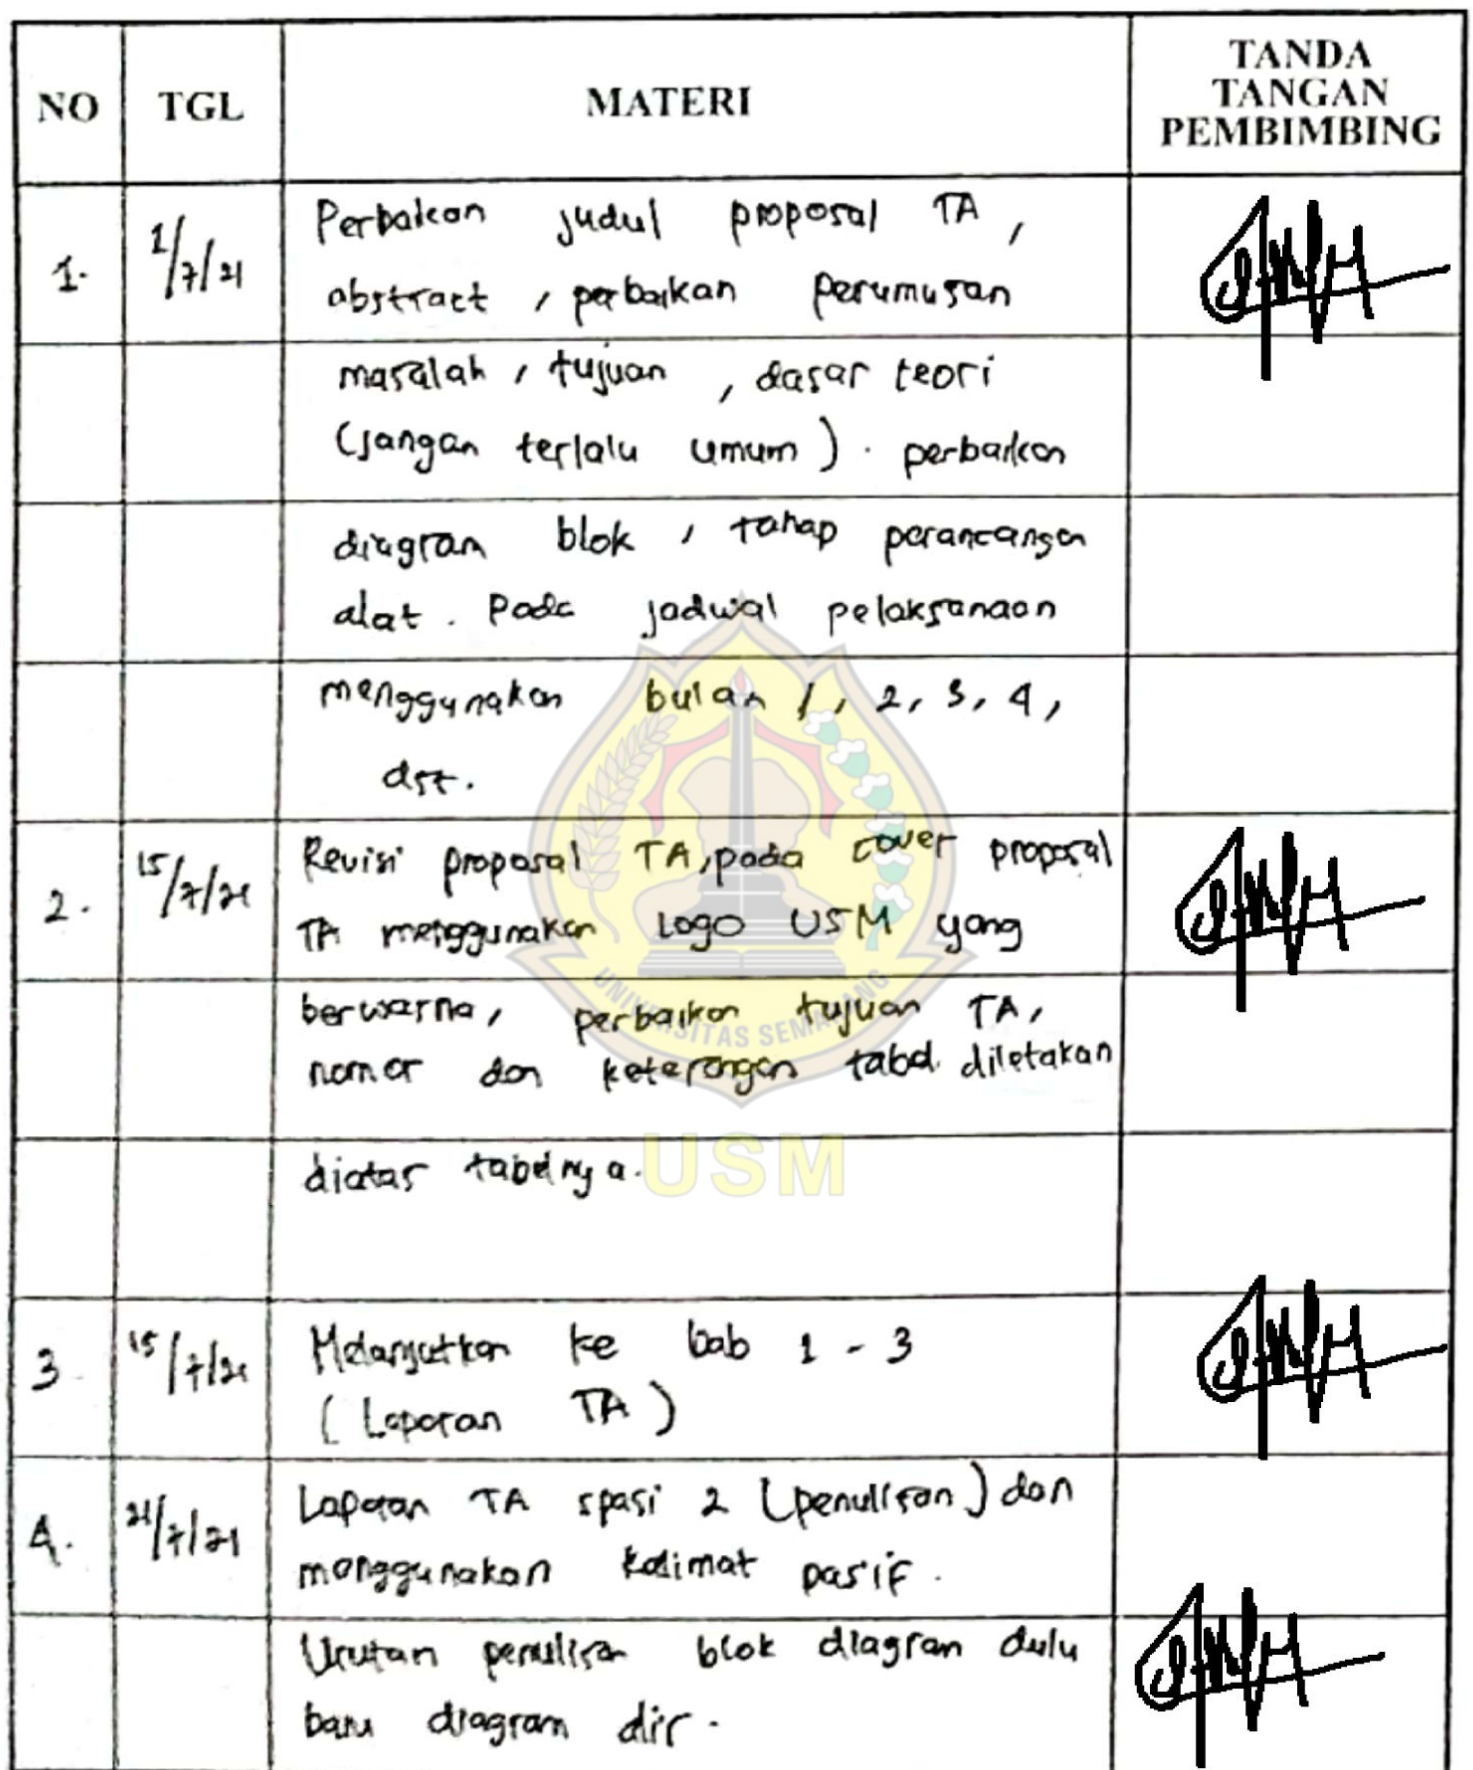 NO TGL MATERI TANDA
TANGAN
PEMBIMBING
1. 1/7/21 Perbaikan judul proposal TA,
abstract, perbaikan perumusan
masalah, tujuan, dasar teori
(jangan terlalu umum). perbaikan
diagram blok, tahap perancangan
alat. Pada jadwal pelaksanaan
menggunakan bulan 1, 2, 3, 4,
dst.
2. 15/7/21 Revisi proposal TA, pada cover proposal
TA menggunakan Logo USM yang
berwarna, perbaikan tujuan TA,
nomor dan keterangan tabel diletakan
diatas tabelnya.
3. 15/7/21 Melanjutkan ke bab 1 - 3
(Laporan TA)
4. 21/7/21 Laporan TA spasi 2 (penulisan) dan
menggunakan kalimat pasif.
Urutan penulisan blok diagram dulu
baru diagram alir.
UNIVERSITAS SEMARANG
USM